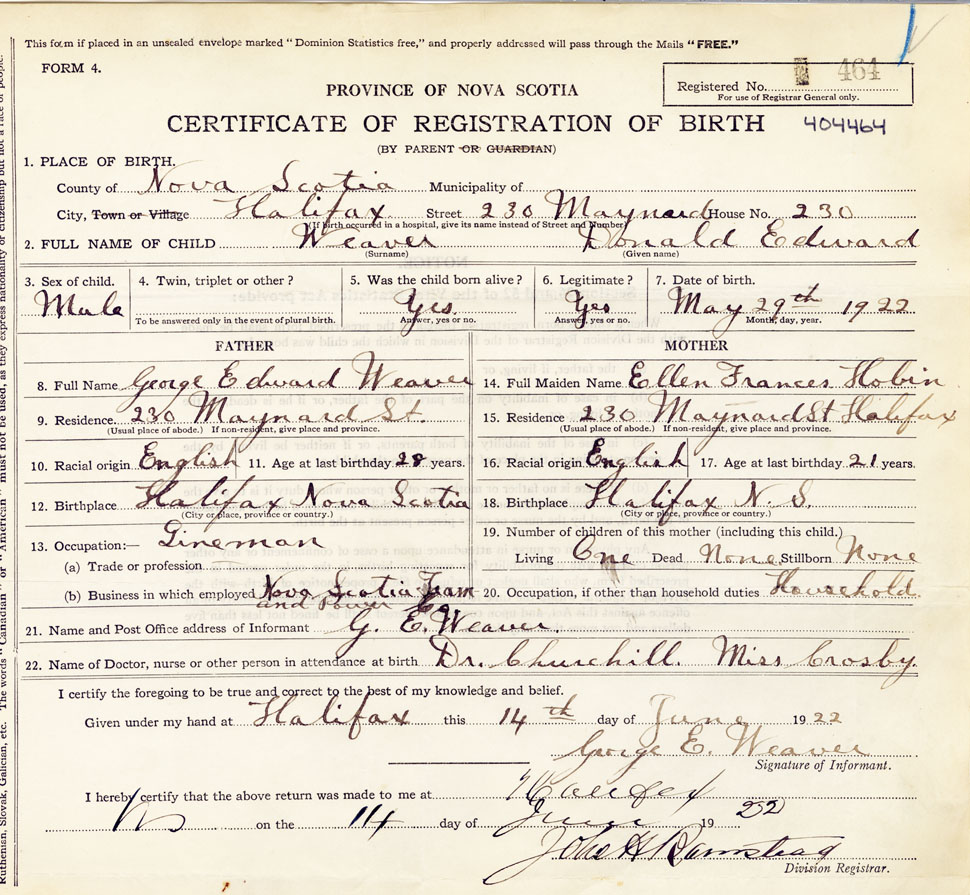 This form if placed in an unsealed envelope marked "Dominion Statistics free," and properly addressed will pass through the Mails "FREE."
FORM 4.
464
Registered No.
For use of Registrar General only.
PROVINCE OF NOVA SCOTIA
CERTIFICATE OF REGISTRATION OF BIRTH 404464
(BY PARENT OR GUARDIAN)
1. PLACE OF BIRTH.
County of Nova Scotia Municipality of
City, Town or Village Halifax Street 230 Maynard House No. 230
(If birth occurred in a hospital, give its name instead of Street and Number)
2. FULL NAME OF CHILD Weaver Donald Edward
(Surname) (Given name)
3. Sex of child. 4. Twin, triplet or other? 5. Was the child born alive? 6. Legitimate? 7. Date of birth.
Male Yes. Yes May 29th 1922
To be answered only in the event of plural birth. Answer, yes or no. Answer, yes or no. Month, day, year.
FATHER MOTHER
8. Full Name George Edward Weaver 14. Full Maiden Name Ellen Frances Hobin
9. Residence 230 Maynard St. 15. Residence 230 Maynard St Halifax
(Usual place of abode.) If non-resident, give place and province. (Usual place of abode.) If non-resident, give place and province.
10. Racial origin English 11. Age at last birthday 28 years. 16. Racial origin English 17. Age at last birthday 21 years.
12. Birthplace Halifax Nova Scotia 18. Birthplace Halifax N. S.
(City or place, province or country.) (City or place, province or country.)
13. Occupation:— Lineman 19. Number of children of this mother (including this child.)
(a) Trade or profession Living One Dead None Stillborn None
(b) Business in which employed Nova Scotia Tram and Power Co. 20. Occupation, if other than household duties Household.
21. Name and Post Office address of Informant G. E. Weaver.
22. Name of Doctor, nurse or other person in attendance at birth Dr. Churchill. Miss Crosby.
I certify the foregoing to be true and correct to the best of my knowledge and belief.
Given under my hand at Halifax this 14th day of June 1922
George E. Weaver
Signature of Informant.
I hereby certify that the above return was made to me at Halifax
on the 14 day of June 1922
John H
Division Registrar.
Ruthenian, Slovak, Galician, etc. The words "Canadian" or "American" must not be used, as they express nationality or citizenship but not a race of people.